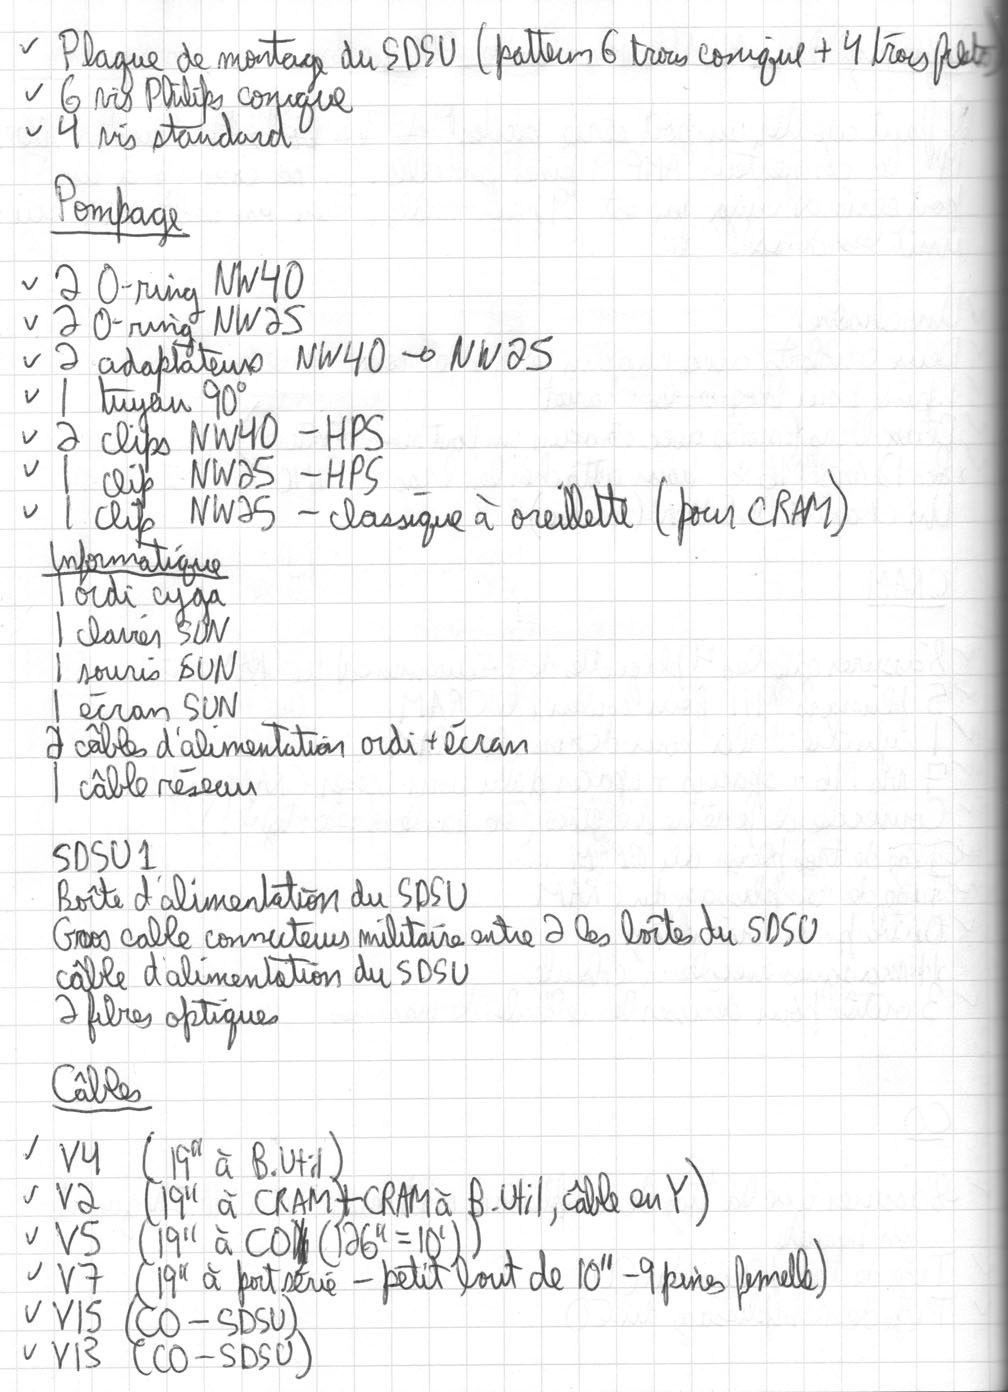 ✓ Plaque de montage du SDSU (pattern 6 trous conique + 4 trous filet)
✓ 6 vis Philips conique
✓ 4 vis standard
Pompage
✓ 2 O-ring NW40
✓ 2 O-ring NW25
✓ 2 adaptateurs NW40 → NW25
✓ 1 tuyau 90°
✓ 2 clips NW40 - HPS
✓ 1 clip NW25 - HPS
✓ 1 clip NW25 - classique à oreillette (pour CRAM)
Informatique
1 ordi cyga
1 clavier SUN
1 souris SUN
1 écran SUN
2 câbles d'alimentation ordi + écran
1 câble réseau
SDSU1
Boîte d'alimentation du SDSU
Gros cable connecteurs militaire entre 2 les boîtes du SDSU
câble d'alimentation du SDSU
2 fibres optiques
Câbles
✓ V4 (19" à B.Util)
✓ V2 (19" à CRAM + CRAM à B.Util, câble en Y)
✓ V5 (19" à CO (126" = 10'))
✓ V7 (19" à port série - petit bout de 10" - 9 pines femelle)
✓ V15 (CO - SDSU)
✓ V13 (CO - SDSU)